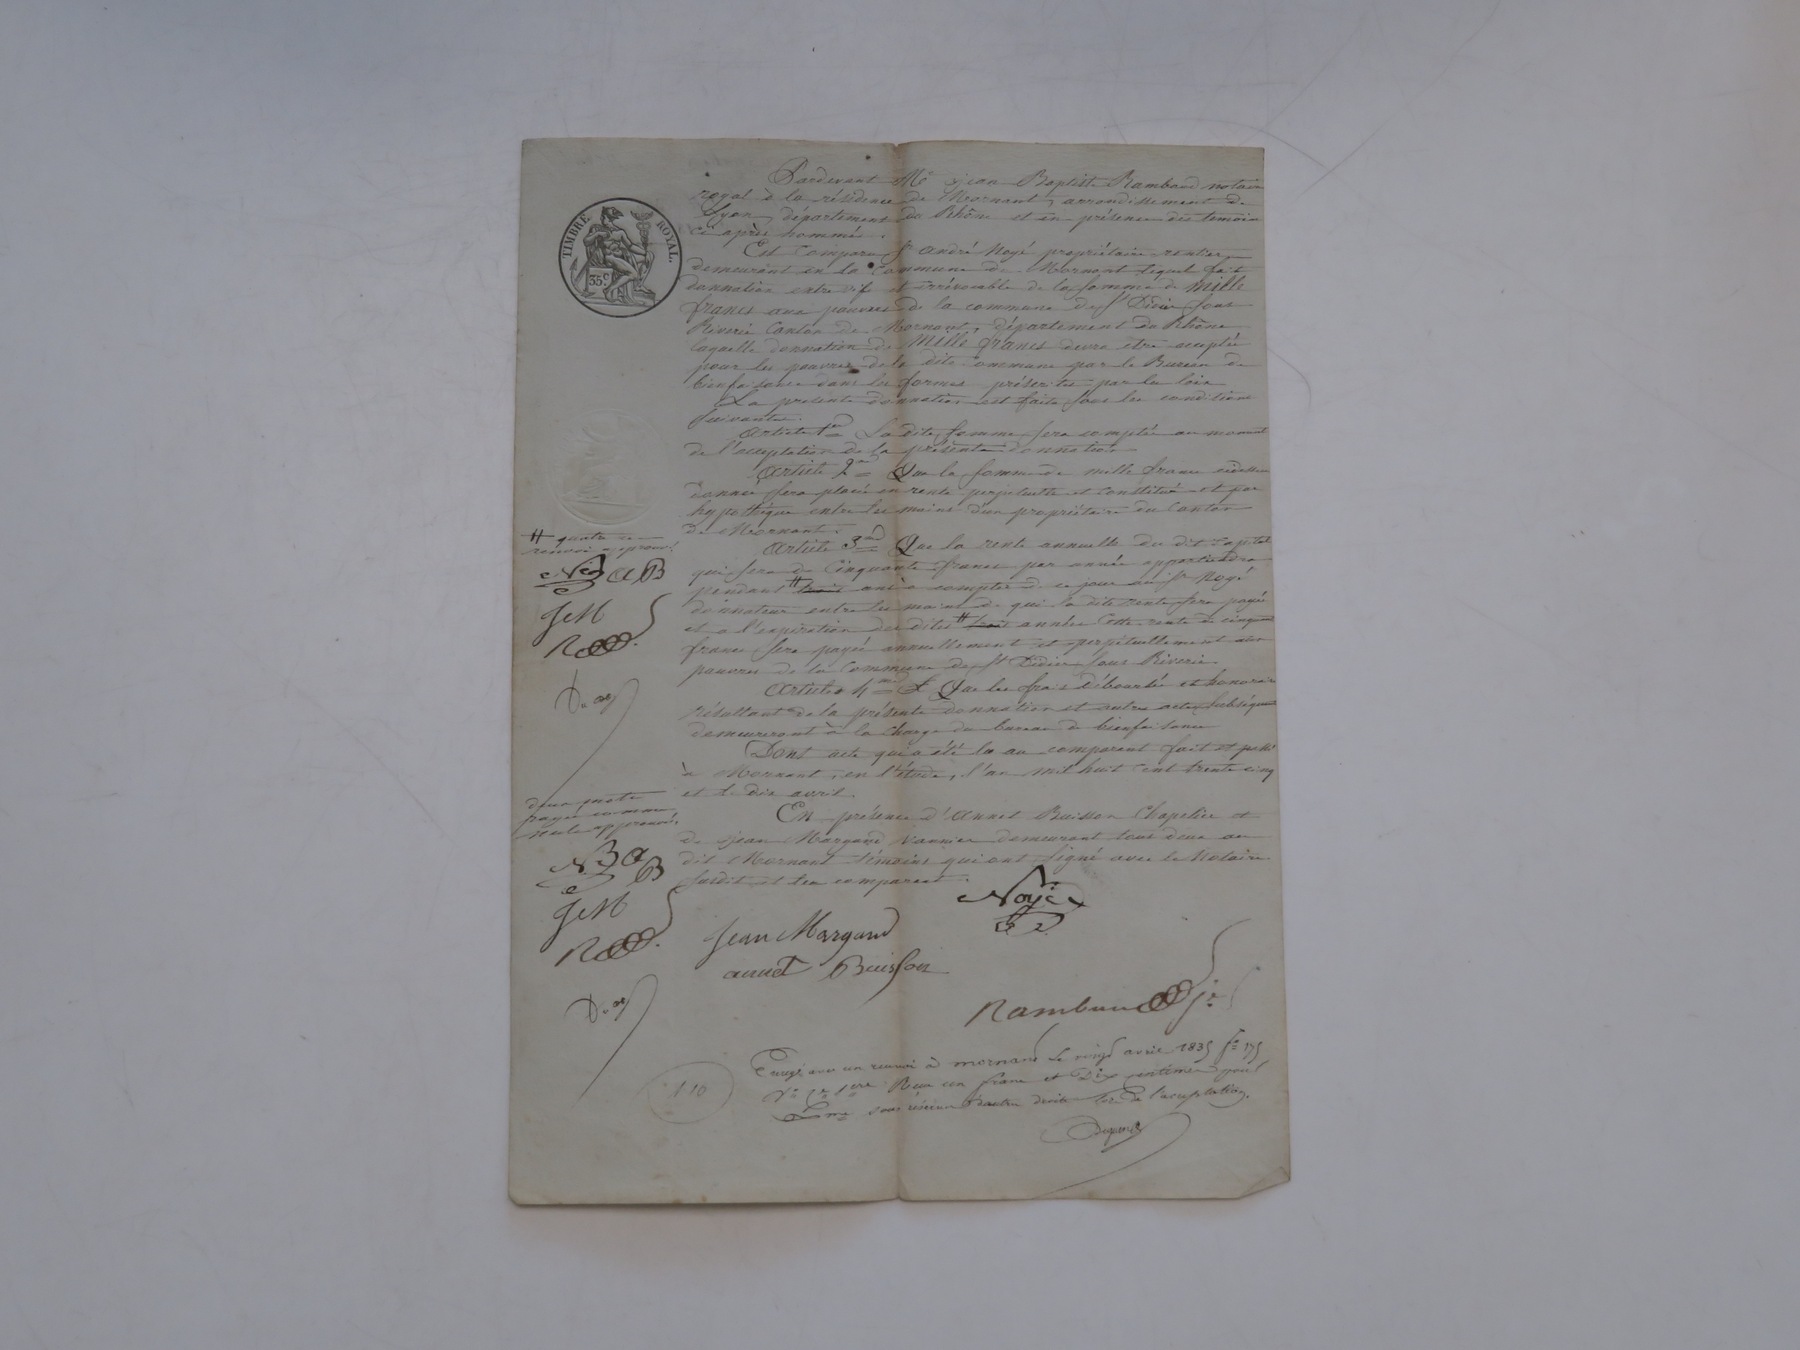 TIMBRE ROYAL.
35 c.
Pardevant Me jean Baptiste Rambaud notaire
royal à la résidence de Mornant, arrondissement de
Lyon, département du Rhône et en présence des temoins
ci après nommés.
Est Comparu Sr andré Noyé propriétaire rentier
demeurant en la Commune de Mornant lequel fait
donnation entre vif et irrévocable de la somme de mille
francs aux pauvres de la commune de St Didier sous
Riverie Canton de Mornant, département du Rhône
laquelle donnation de Mille francs devra être acceptée
pour les pauvres de la dite Commune par le Bureau de
bienfaisance dans les formes préscrites par les lois
La presente donnation est faite sous les conditions
suivantes.
Article 1er La dite somme sera comptée au moment
de l'acceptation de la présente donnation
Article 2me Que la somme de mille francs cidessus
donnée sera placée en rente perpétuelle et constituée et par
hypothèque entre les mains d'un propriétaire du Canton
de Mornant.
Article 3me Que la rente annuelle du dit capital
qui sera de Cinquante francs par année appartiendra
pendant # trois ans à compter de ce jour au Sr Noyé
donnateur entre les mains de qui la dite rente sera payée
et a l'expiration des dites # trois années Cette rente de cinquante
francs sera payée annuellement et perpétuellement aux
pauvres de la Commune de St Didier sous Riverie.
Article 4me Que les frais déboursés et honoraires
résultant de la présente donnation et autres actes subséquents
demeureront à la Charge du bureau de bienfaisance
Dont acte qui a été lu au comparant fait et passé
à Mornant, en l'étude, l'an mil huit cent trente cinq
et le dix avril.
En présence d'Annet Buisson Chapelier et
de jean Margand vannier demeurant tous deux au
dit Mornant témoins qui ont signé avec le Notaire
susdit et le comparant.
# quatre
renvoi approuvé
N A B
JM
R
deux mots
rayés comme
nuls approuvés
N A B
JM
R
Noyé
Jean Margand
annet Buisson
Rambaud jne
110
Enregé avec un renvoi à mornant le vingt avril 1835 fo 175
Vo Reçu un franc et dix centimes pour
Dme sous réserve d'autres droits lors de l'acceptation.